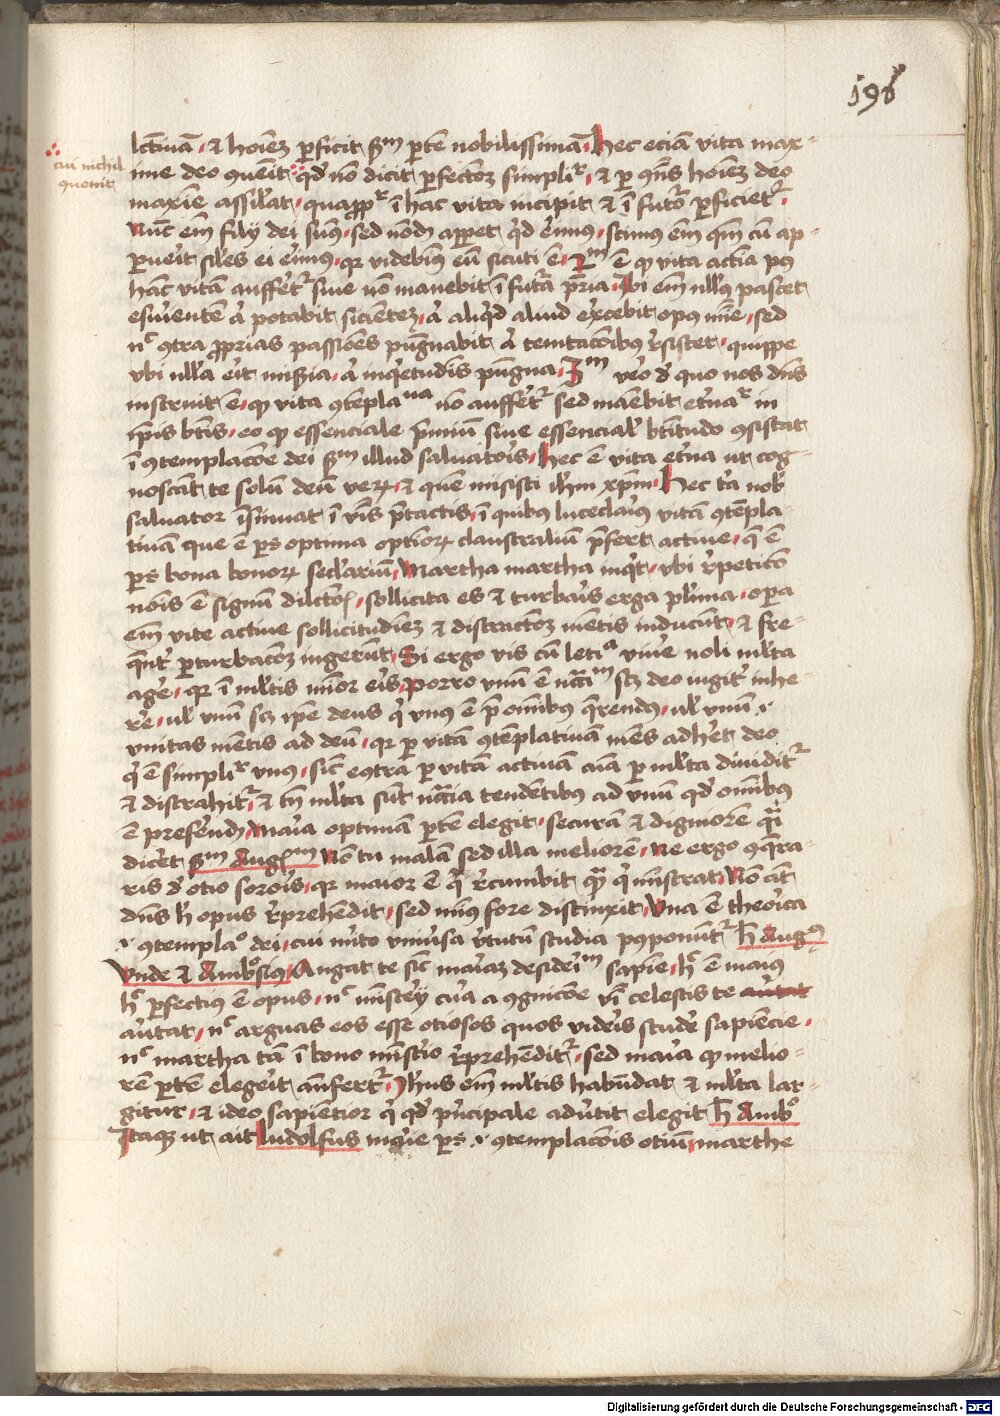 198
lectiuā · et hoīem perficit scdm ptē nobilissimā · Hec eciā vita max-
cui nichil
quenit
ime deo ꝯuenit · qd nō dicit perfectōem simplr · et per ꝯns hoīem deo
maxīe assilat · quapropr ī hac vita incipit et ī futō perficietr ·
Nūc em̄ filij dei sum9 · sed nōdū apparet qd erim9 · scimus em̄ qm̄ cū ap-
paruerit siles ei erim9 · qr videbim9 eū sicuti ē · 2m ē qp vita actīa post
hāc vitā auffertr siue nō manebit ī futa pria · Ibi em̄ null9 pascet
esurientē aut potabit sicientem · aut aliqd aliud exercebit opus mīe · sed
nec ꝯtra proprias passiōes pugnabit aut temtacōibus resistet · quippe
vbi nulla erit miseria · aut inqetudinis pugna · 3m vero de quo nos dn̄s
instruit ē · qp vita ꝯtemplaua nō auffertr sed manebit eternar in
ip̄is btīs · eo qp essenciale premiū siue essencialis btitudo ꝯsistat
ī ꝯtemplacōe dei scdm illud saluatoris · Hec ē vita eterna ut cog-
noscāt te solū deū verum · et quē misisti ihm xpm · Hec tria nob
saluator īsinuat ī vbis pretactis · ī quibus luce clari9 vitā ꝯtēpla
tiuā que ē pars optima optiorum claustraliū prefert actiue · q̄ ē
pars bona bonorum seclariū · Martha martha inqt · vbi repeticio
nois ē signū dilctois · sollicita es et turbaris erga plima · opera
em̄ vite actiue sollicitudīem et distractōem mentis inducunt · et fre-
qnter perturbacōem ingerūt · Si ergo vis cū leticia viuere noli multa
agere · qr ī multis minor eris · Porro vnū ē necrium scz deo iugiter inhe
rere · ul vnū scz ipe deus qui vnus ē pre omnibus querendus · ul vnū .i.
vnitas mentis ad deū · qr per vitā ꝯtēplatiuā mens adheret deo
qui ē simplr vnus · sic ecotra per vitā actiuā cura per multa diuiditr
et distrahitr · et tn̄ multa sunt necria tendentibus ad vnū qd omnibus
ē preferendū · Maria optimā ptē elegit · securā et digniorē qua
diceret scdm Augm Nō tu malā sed illa meliorē · Ne ergo ꝯqra-
ris de otio sororis · qr maior ē que recumbit qua que ministrat · Nō aut
dn̄s hoc opus reprehendit · sed munus fore distinxit · Vna ē theorica
.i. ꝯtempla° dei · cui merito vniuersa virtutum studia postponuntr hec Aug9
Vnde et Ambrosius · Augat te sic mariam desideriū sapie · hoc ē maius
hoc perfectius ē opus · nec ministerij cura a ꝯgnicōe verbi celestis te
auertat · nec arguas eos esse otiosos quos videris studere sapiencie ·
nec martha tn̄ ī bono ministerio reprehenditr · sed maria qp melio-
rem ptē elegerit anfertr · Ihesus em̄ multis habundat et multa lar-
gitur · et ideo sapientior que qd principale aduertit elegit hec Ambr°
Itaque ut ait Ludolfus inqrie pars .i. ꝯtemplacōis otiū marthe
Digitalisierung gefördert durch die Deutsche Forschungsgemeinschaft - DFG